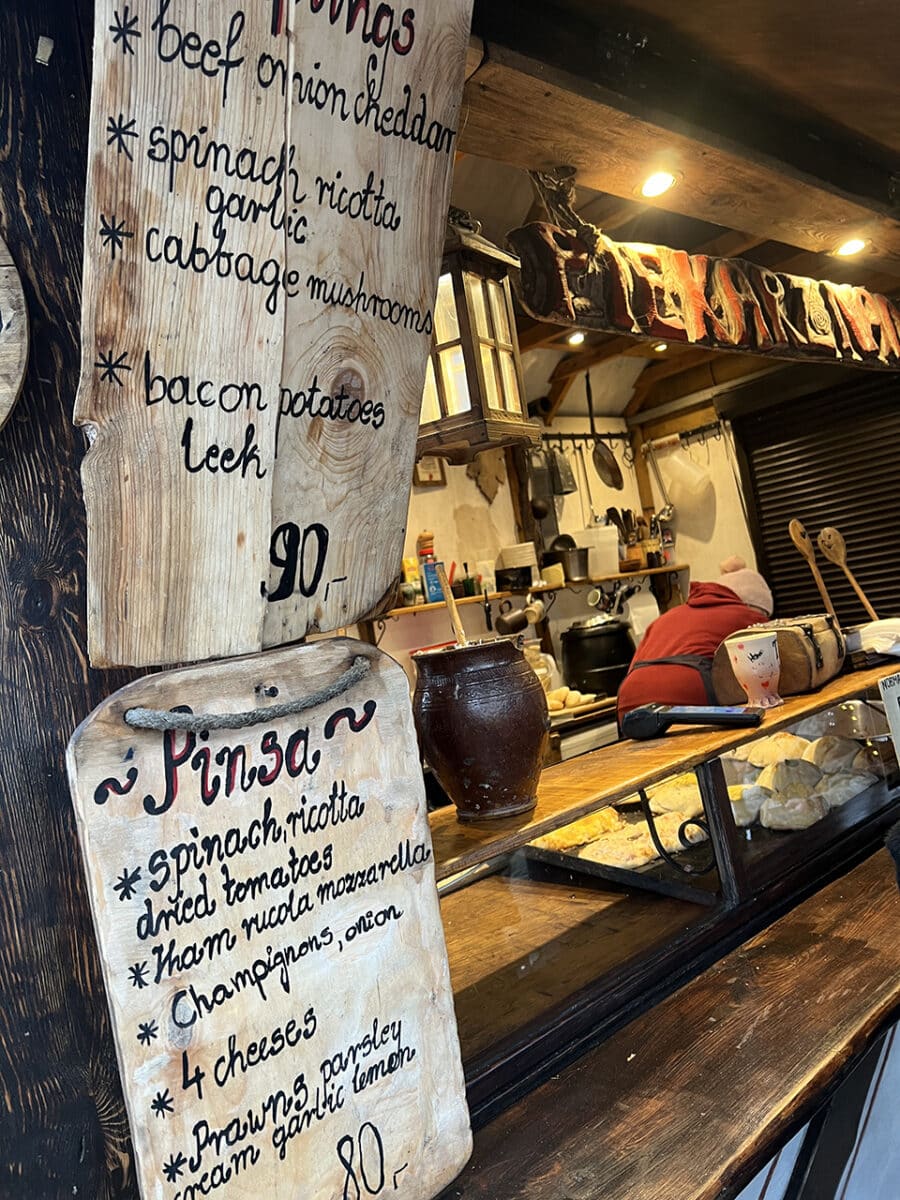 * beef onion cheddar
* spinach ricotta
garlic
* cabbage mushrooms
* bacon potatoes
leek
90,-
~ Pinsa ~
* spinach, ricotta
dried tomatoes
* Ham rucola mozzarella
* Champignons, onion
* 4 cheeses
* Prawns parsley
cream garlic lemon
80,-